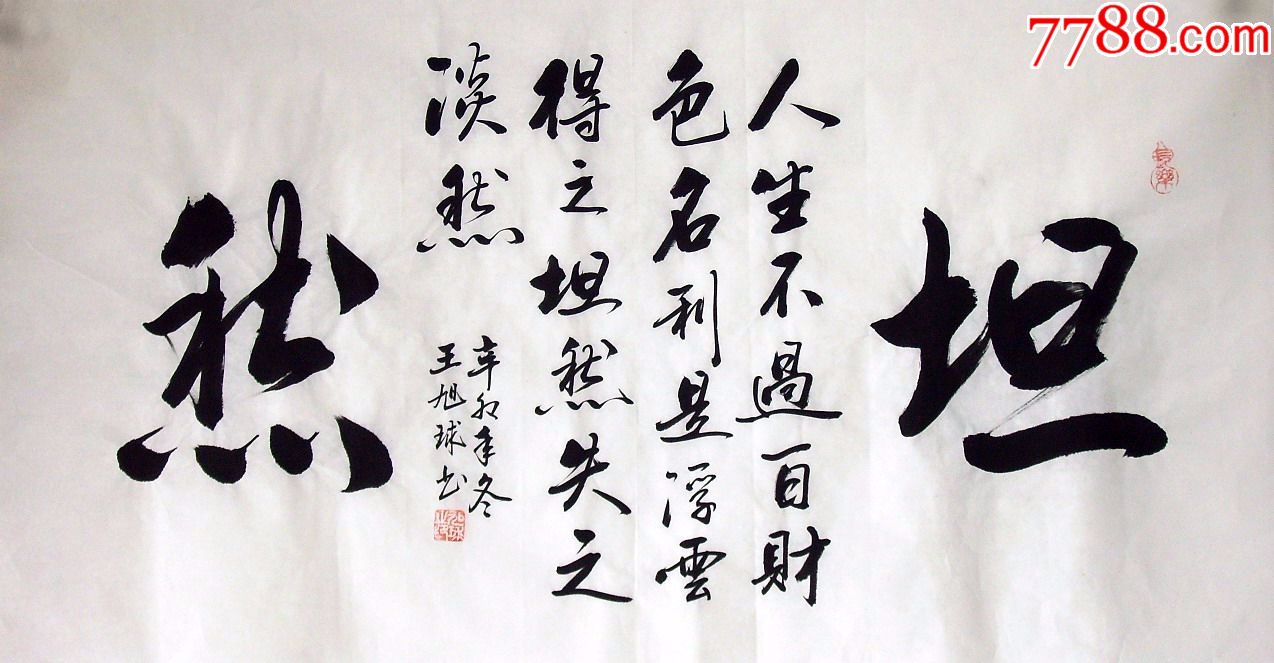 7788.com
坦
人生不過百財
色名利是浮雲
得之坦然失之
淡然
辛卯年冬
王旭球书
然